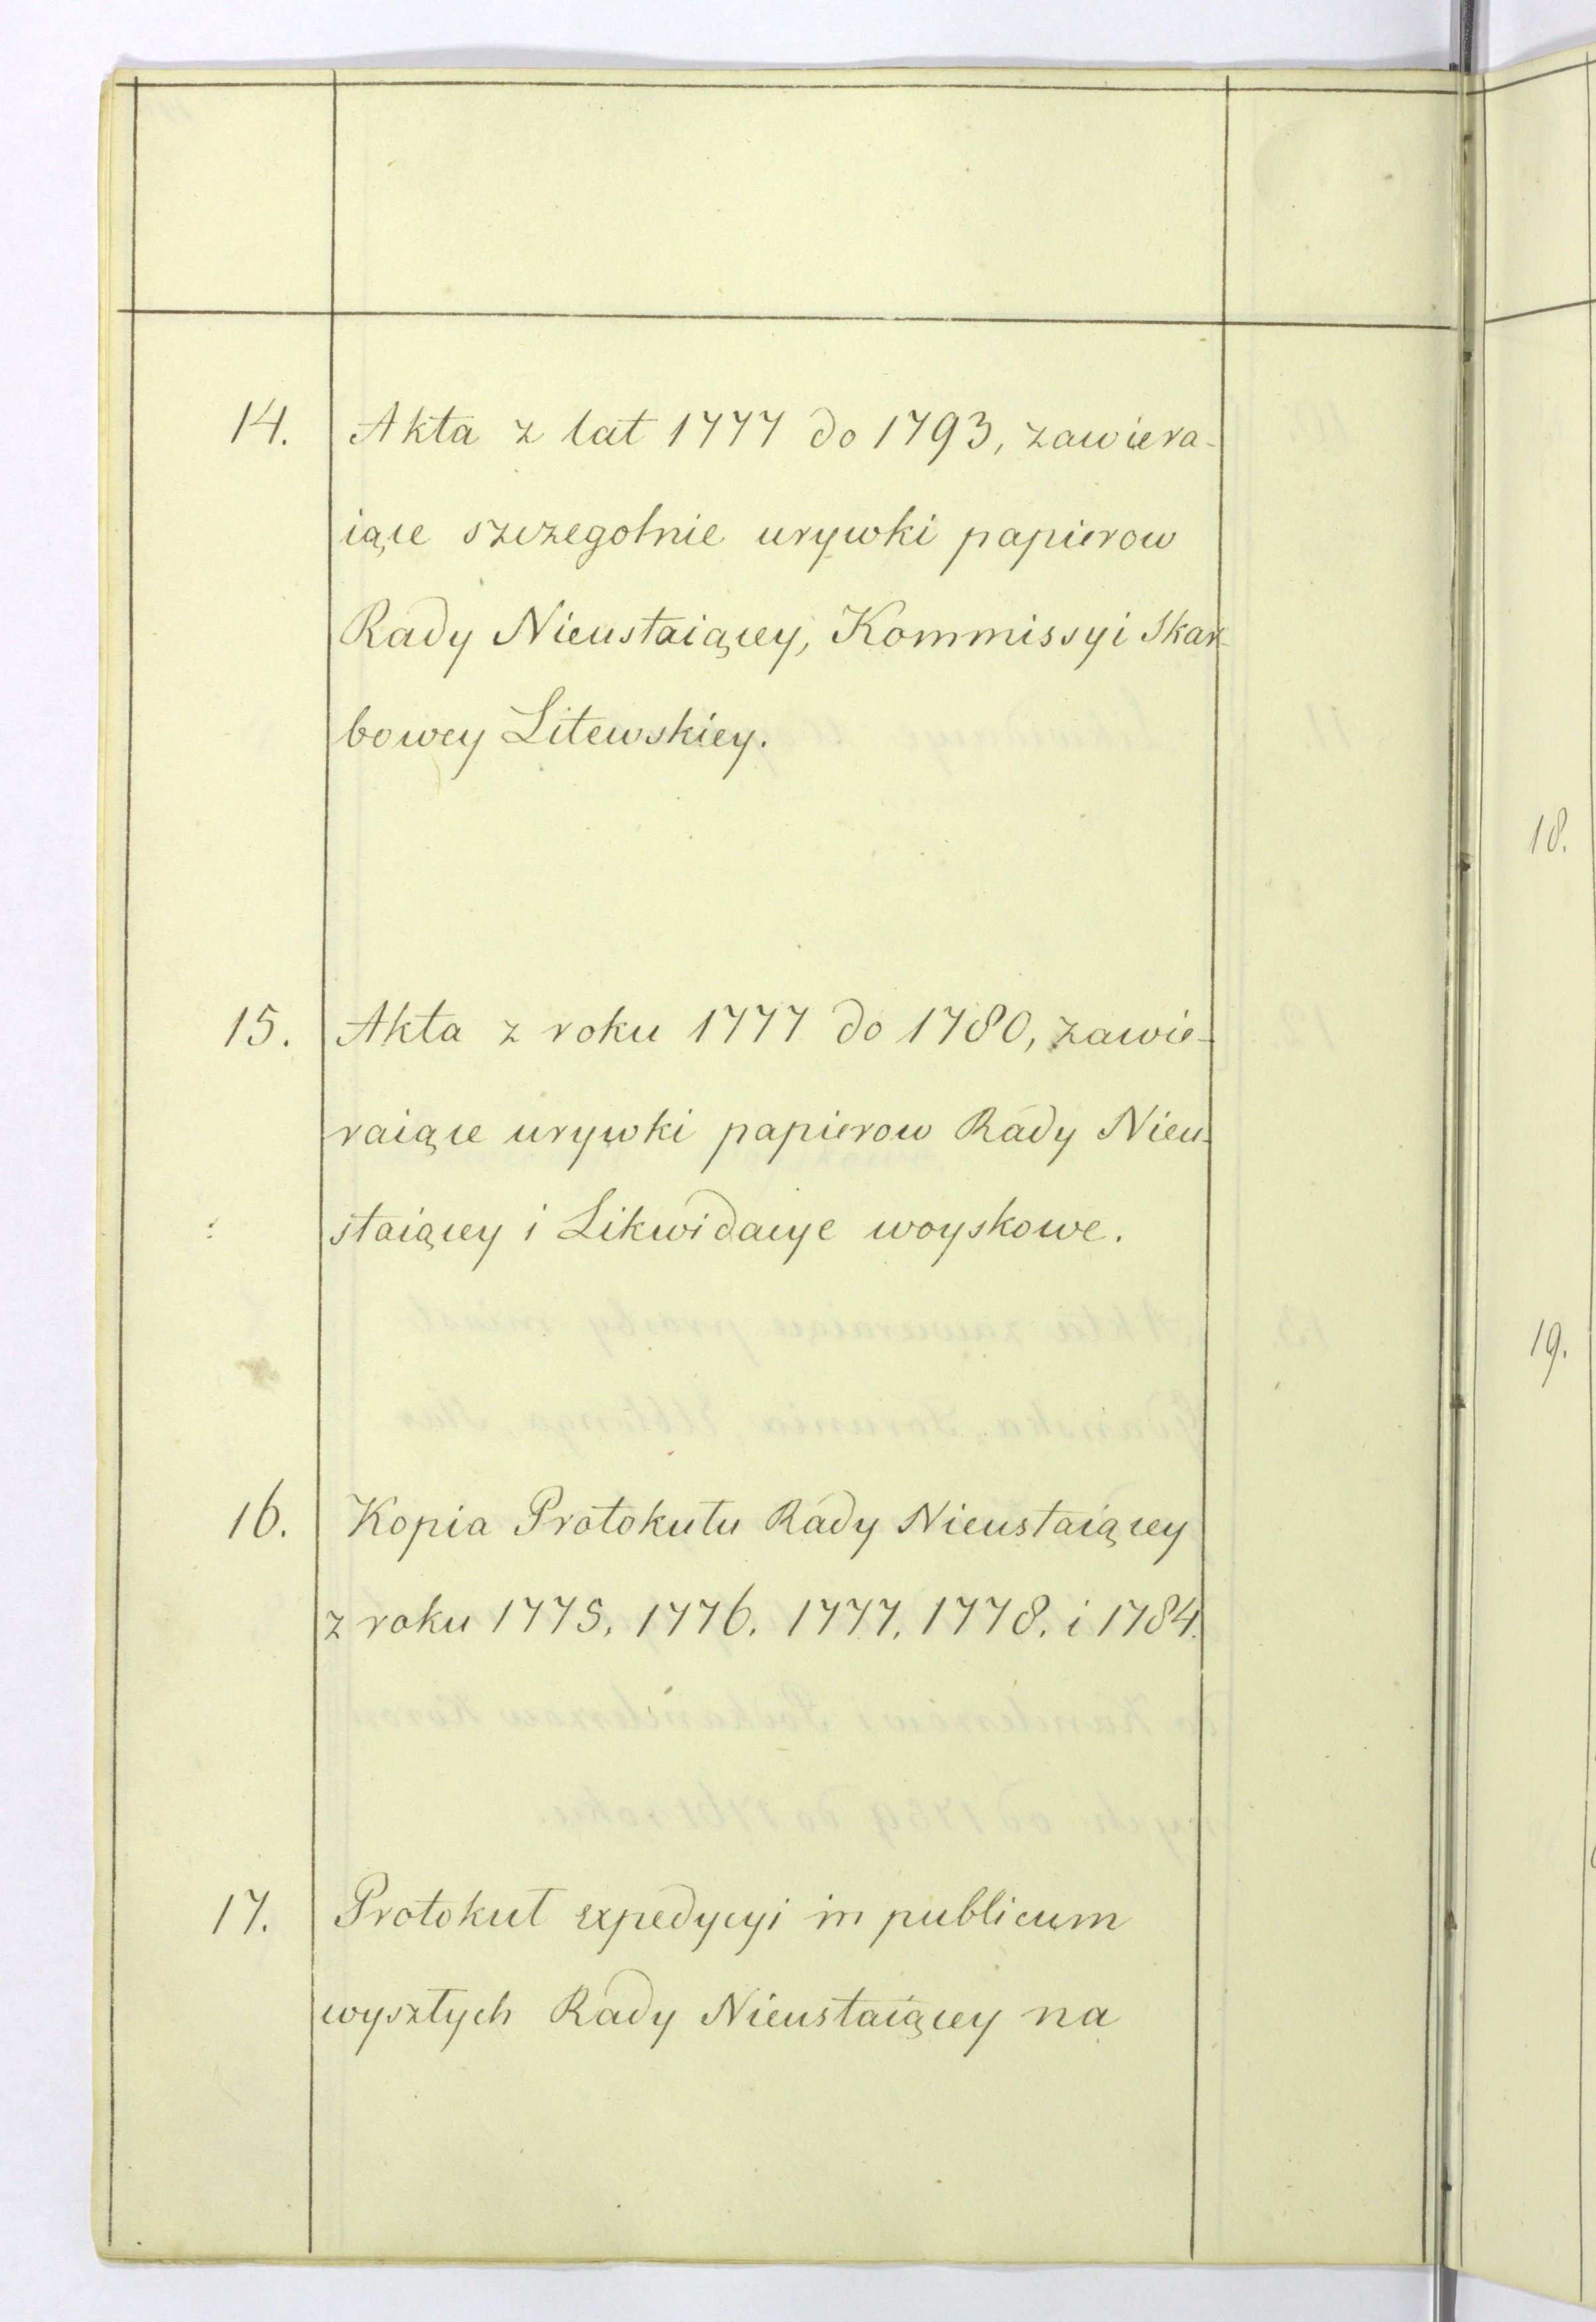 14. Akta z lat 1777 do 1793, zawiera-
iące szczegolnie urywki papierow
Rady Nieustaiącey, Kommissyi Skar-
bowey Litewskiey.
15. Akta z roku 1777 do 1780, zawie-
raiące urywki papierow Rady Nieu-
staiącey i Likwidacye woyskowe.
16. Kopia Protokułu Rady Nieustaiącey
z roku 1775. 1776. 1777. 1778. i 1784.
17. Protokuł expedycyi in publicum
wyszłych Rady Nieustaiącey na
18.
19.